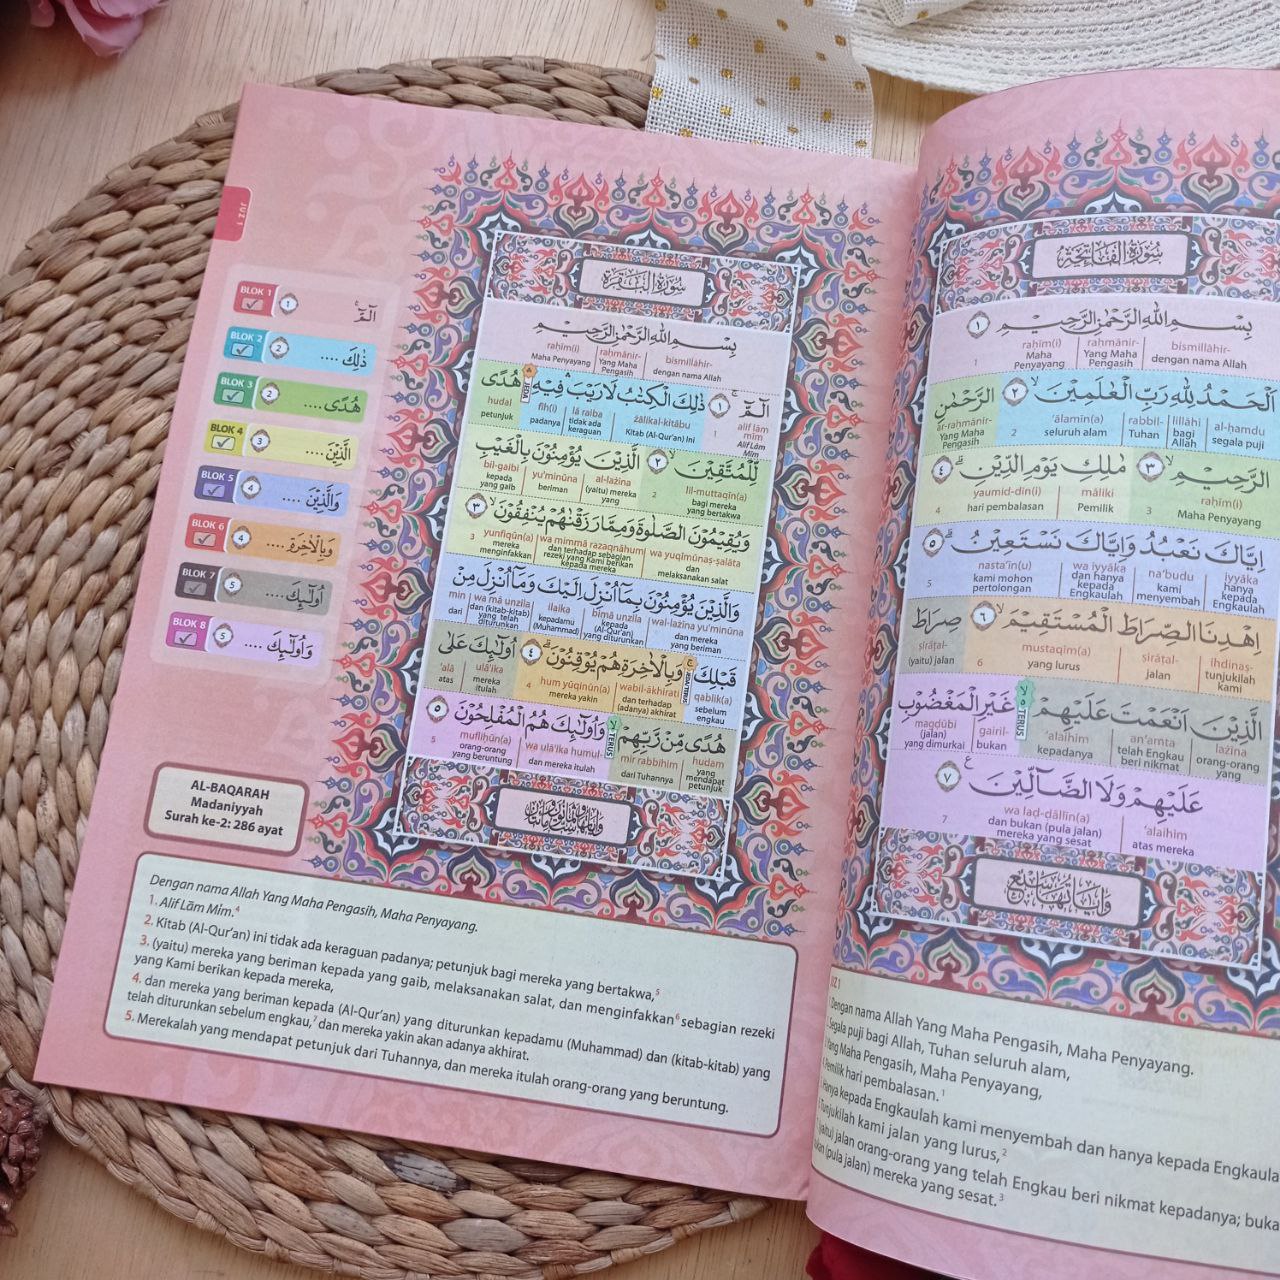 سُوْرَةُ الْفَاتِحَةِ
بِسْمِ اللّٰهِ الرَّحْمٰنِ الرَّحِيْمِ ١
bismillāhir- raḥmānir- raḥīm(i)
dengan nama Allah Yang Maha Pengasih Maha Penyayang
1
اَلْحَمْدُ لِلّٰهِ رَبِّ الْعٰلَمِيْنَ ٢ الرَّحْمٰنِ
al-ḥamdu lillāhi rabbil- 'ālamīn(a) ar-raḥmānir-
segala puji bagi Allah Tuhan seluruh alam Yang Maha Pengasih
2
الرَّحِيْمِ ٣ مٰلِكِ يَوْمِ الدِّيْنِ ٤
raḥīm(i) māliki yaumid-dīn(i)
Maha Penyayang Pemilik hari pembalasan
3 4
اِيَّاكَ نَعْبُدُ وَاِيَّاكَ نَسْتَعِيْنُ ٥
iyyāka na'budu wa iyyāka nasta'īn(u)
hanya kepada Engkaulah kami menyembah dan hanya kepada Engkaulah kami mohon pertolongan
5
اِهْدِنَا الصِّرَاطَ الْمُسْتَقِيْمَ ٦ صِرَاطَ
ihdinaṣ- ṣirāṭal- mustaqīm(a) ṣirāṭal-
tunjukilah kami jalan yang lurus (yaitu) jalan
6
الَّذِيْنَ اَنْعَمْتَ عَلَيْهِمْ TERUS غَيْرِ الْمَغْضُوْبِ
lażīna an'amta 'alaihim gairil- magḍūbi
orang-orang yang telah Engkau beri nikmat kepadanya bukan (jalan) yang dimurkai
عَلَيْهِمْ وَلَا الضَّاۤلِّيْنَ ٧
'alaihim wa laḍ-ḍāllīn(a)
atas mereka dan bukan (pula jalan) mereka yang sesat
7
وَاٰيَاتُهَا سَبْعٌ
Dengan nama Allah Yang Maha Pengasih, Maha Penyayang.
Segala puji bagi Allah, Tuhan seluruh alam,
Yang Maha Pengasih, Maha Penyayang,
Pemilik hari pembalasan.1
Hanya kepada Engkaulah kami menyembah dan hanya kepada
Tunjukilah kami jalan yang lurus,2
(yaitu) jalan orang-orang yang telah Engkau beri nikmat kepadanya;
(pula jalan) mereka yang sesat.3
JUZ 1
BLOK 1 1 الۤمّۤ
BLOK 2 2 ذٰلِكَ ....
BLOK 3 2 هُدًى ....
BLOK 4 3 الَّذِيْنَ ....
BLOK 5 4 وَالَّذِيْنَ ....
BLOK 6 4 وَبِالْاٰخِرَةِ ....
BLOK 7 5 اُولٰۤىِٕكَ ....
BLOK 8 5 وَاُولٰۤىِٕكَ ....
سُوْرَةُ الْبَقَرَةِ
بِسْمِ اللّٰهِ الرَّحْمٰنِ الرَّحِيْمِ
bismillāhir- raḥmānir- raḥīm(i)
dengan nama Allah Yang Maha Pengasih Maha Penyayang
الۤمّۤ ١ ذٰلِكَ الْكِتٰبُ لَا رَيْبَ فِيْهِ JEDA هُدًى
alif lām mīm żālikal-kitābu lā raiba fīh(i) hudal
Alif Lām Mīm Kitab (Al-Qur'an) ini tidak ada keraguan padanya petunjuk
1
لِّلْمُتَّقِيْنَ ٢ الَّذِيْنَ يُؤْمِنُوْنَ بِالْغَيْبِ
lil-muttaqīn(a) al-lażīna yu'minūna bil-gaibi
bagi mereka yang bertakwa (yaitu) mereka yang beriman kepada yang gaib
2
وَيُقِيْمُوْنَ الصَّلٰوةَ وَمِمَّا رَزَقْنٰهُمْ يُنْفِقُوْنَ ٣
wa yuqīmūnaṣ-ṣalāta wa mimmā razaqnāhum yunfiqūn(a)
dan melaksanakan salat dan terhadap sebagian rezeki yang Kami berikan kepada mereka mereka menginfakkan
3
وَالَّذِيْنَ يُؤْمِنُوْنَ بِمَآ اُنْزِلَ اِلَيْكَ وَمَآ اُنْزِلَ مِنْ
wal-lażīna yu'minūna bimā unzila ilaika wa mā unzila min
dan mereka yang beriman kepada (Al-Qur'an) yang diturunkan kepadamu (Muhammad) dan (kitab-kitab) yang telah diturunkan dari
قَبْلِكَ وَبِالْاٰخِرَةِ هُمْ يُوْقِنُوْنَ ٤ اُولٰۤىِٕكَ عَلٰى
qablik(a) wabil-ākhirati hum yūqinūn(a) ulā'ika 'alā
sebelum engkau dan terhadap (adanya) akhirat mereka yakin mereka itulah atas
4
هُدًى مِّنْ رَّبِّهِمْ TERUS وَاُولٰۤىِٕكَ هُمُ الْمُفْلِحُوْنَ ٥
hudam mir rabbihim wa ulā'ika humul- mufliḥūn(a)
yang mendapat petunjuk dari Tuhannya dan mereka itulah orang-orang yang beruntung
5
AL-BAQARAH
Madaniyyah
Surah ke-2: 286 ayat
Dengan nama Allah Yang Maha Pengasih, Maha Penyayang.
1. Alif Lām Mīm.4
2. Kitab (Al-Qur'an) ini tidak ada keraguan padanya; petunjuk bagi mereka yang bertakwa,5
3. (yaitu) mereka yang beriman kepada yang gaib, melaksanakan salat, dan menginfakkan6 sebagian rezeki
yang Kami berikan kepada mereka,
4. dan mereka yang beriman kepada (Al-Qur'an) yang diturunkan kepadamu (Muhammad) dan (kitab-kitab) yang
telah diturunkan sebelum engkau,7 dan mereka yakin akan adanya akhirat.
5. Merekalah yang mendapat petunjuk dari Tuhannya, dan mereka itulah orang-orang yang beruntung.